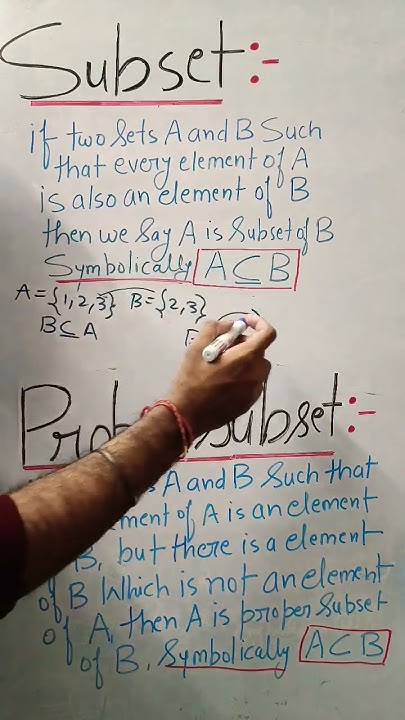 Subset:-
if two sets A and B Such
that every element of A
is also an element of B
then we Say A is Subset of B
Symbolically A ⊆ B
A = {1, 2, 3} B = {2, 3}
B ⊆ A
Subset:-
A and B Such that
of A is an element
B, but there is a element
of B Which is not an element
of A, then A is proper Subset
of B. Symbolically A ⊂ B